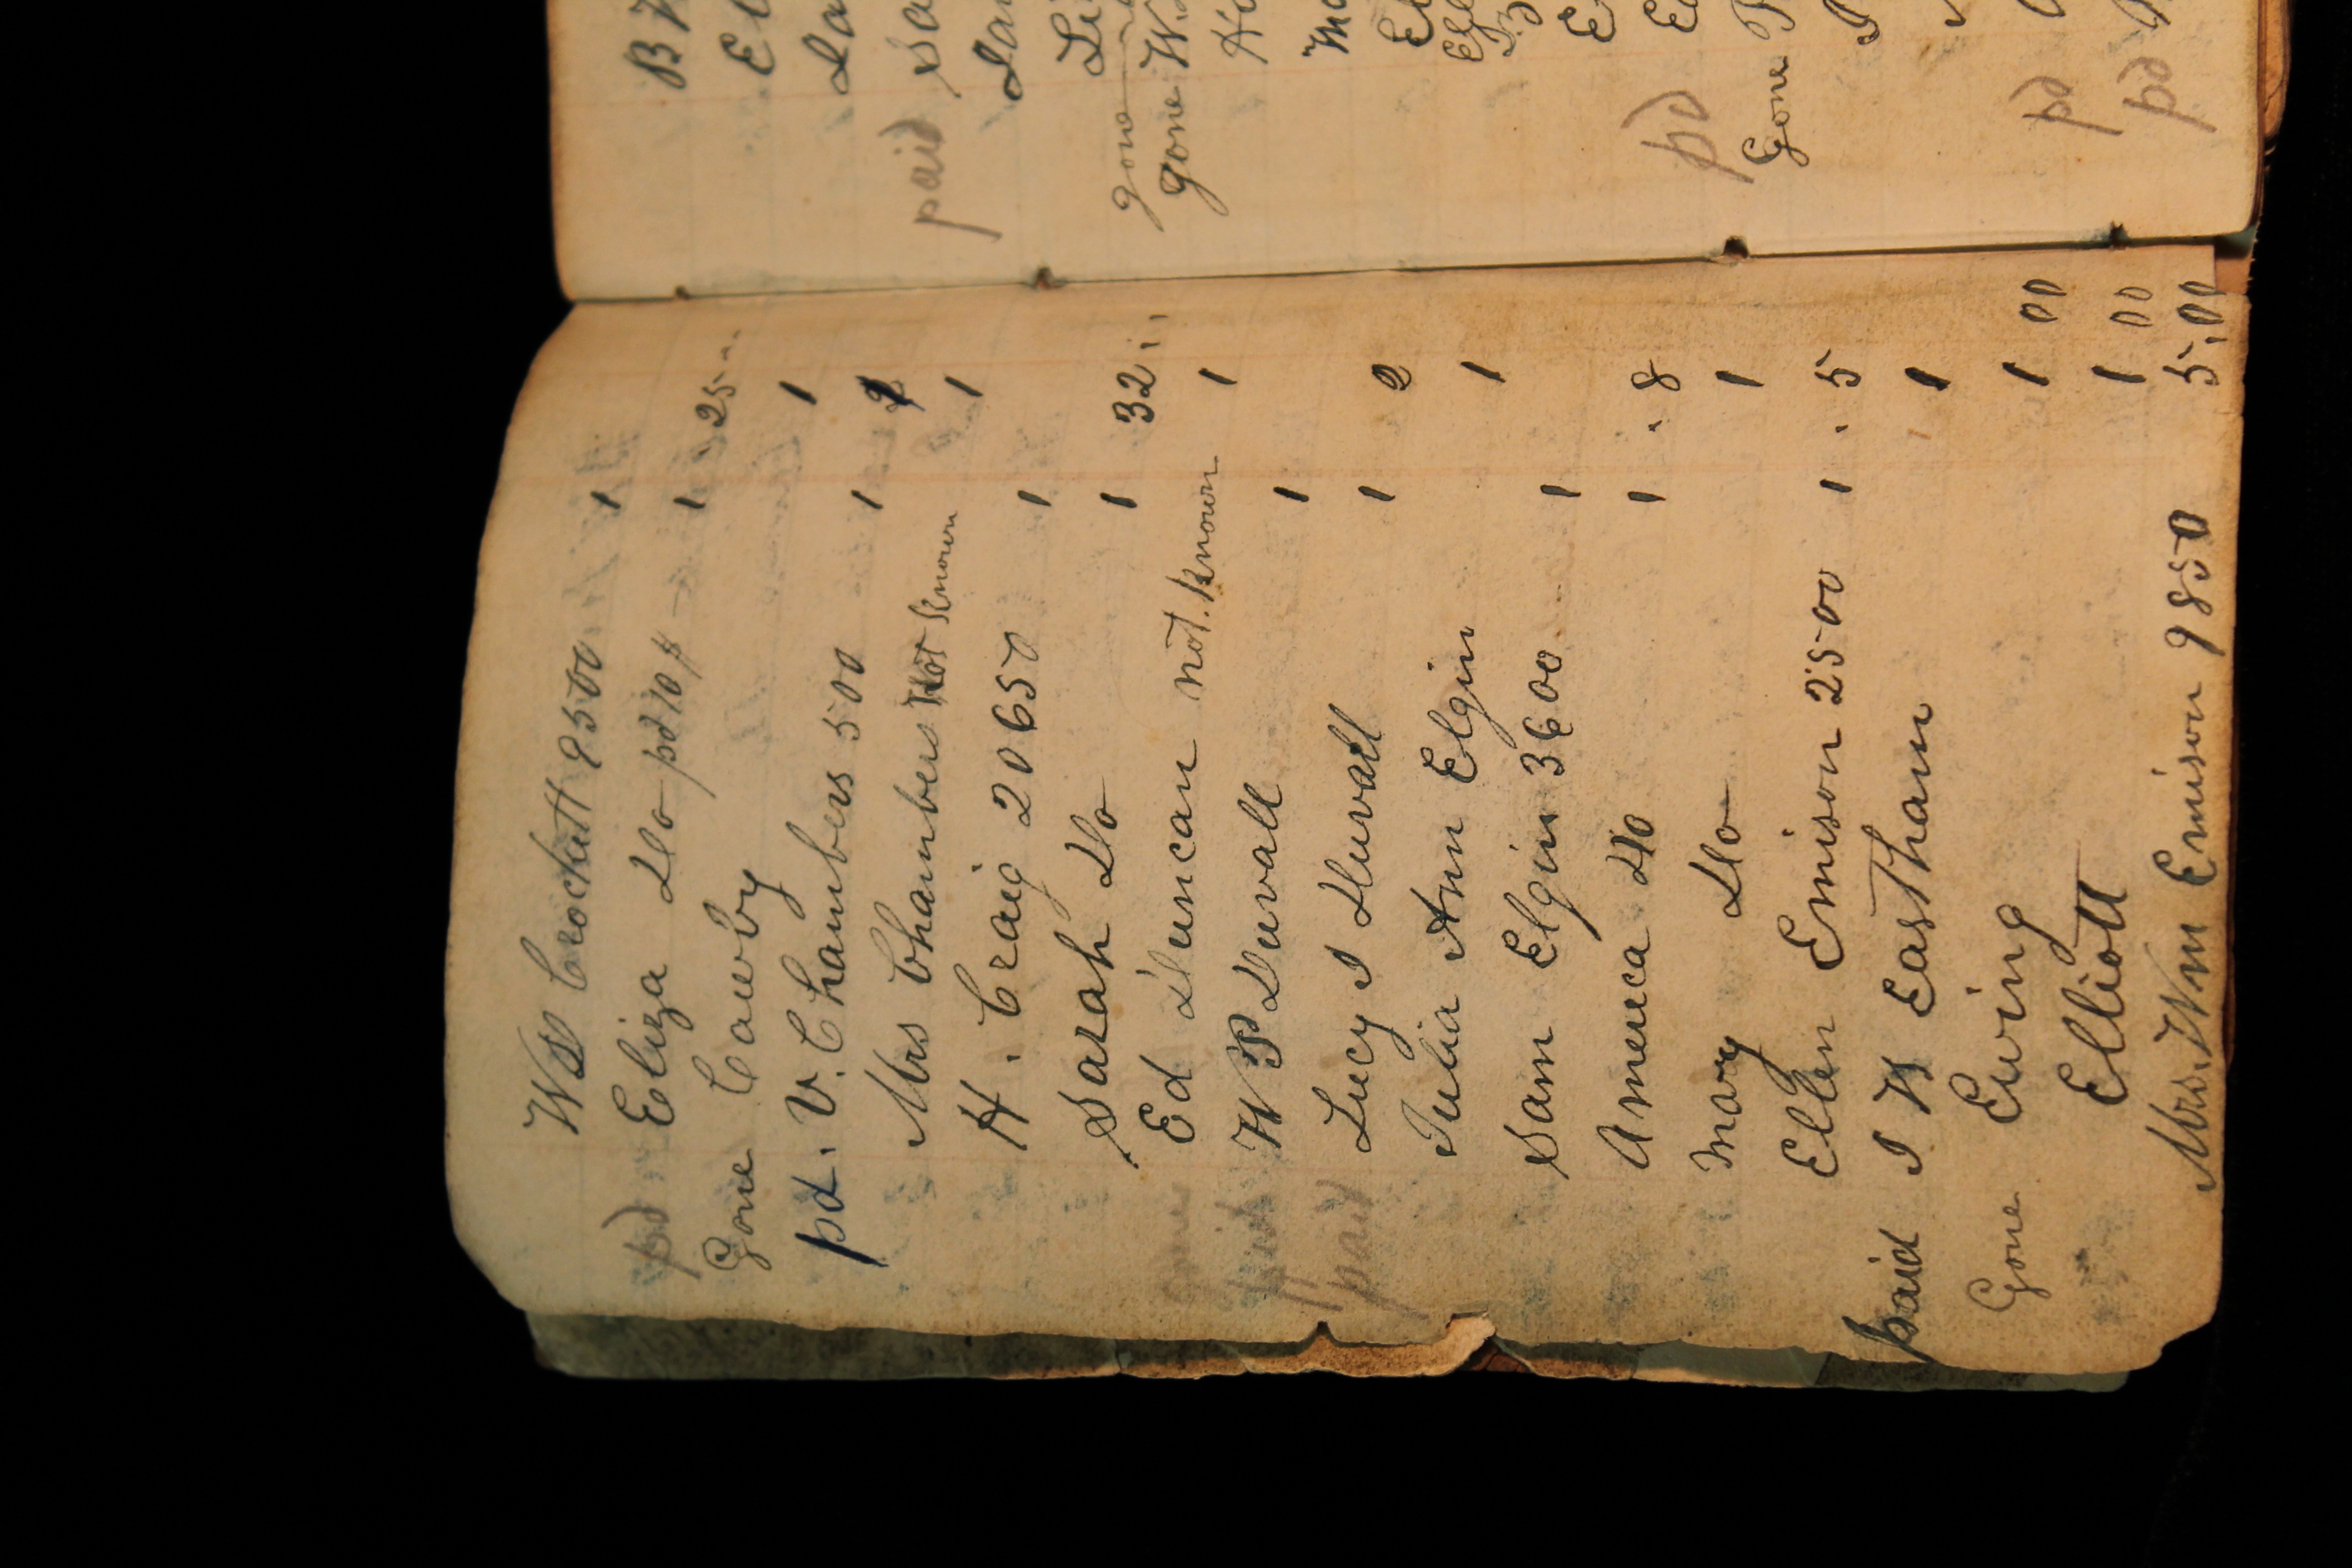 W D Crockett 9500 1
pd Eliza Do pd 10 $ 1 25
Gone Cawby 1
pd. V. Chambers 500 1 1
Mrs Chambers Not Known 1
H. Craig 20650 1
Sarah Do 1 32
gone Ed Duncan not. Known 1
paid W P Duvall 1
paid Lucy J Duvall 1 2
Julia Ann Elgin 1
Sam Elgin 3600 1
America Do 1 8
Mary Do 1
Ellen Emison 2500 1 5
paid J H Eastham 1
Gone Ewing 1 00
Elliott 1 00
Mrs. Wm Emison 9850 5.00
B
El
Ja
paid Sa
Jar
Li
gone
gone W.
Ho
Ma
El
Ell
E
pd Ed
Gone
J
pd
pd